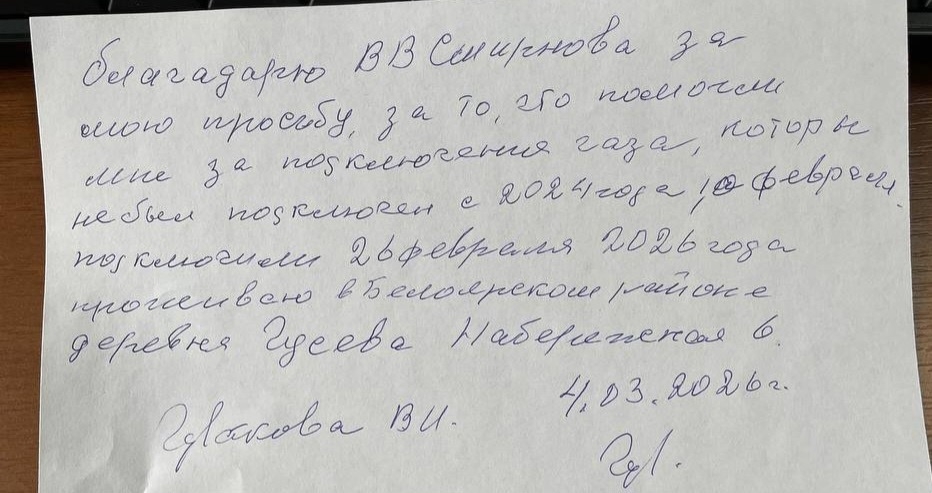 благадарю ВВ Смирнова за
мою просьбу, за то, что помогли
мне за подключения газа, которы
не был подключен с 2024 года, 10 февраля.
подключили 26 февраля 2026 года
проживаю в Белоярском районе
деревня Гусева Набережная 6.
4.03.2026г.
В И.